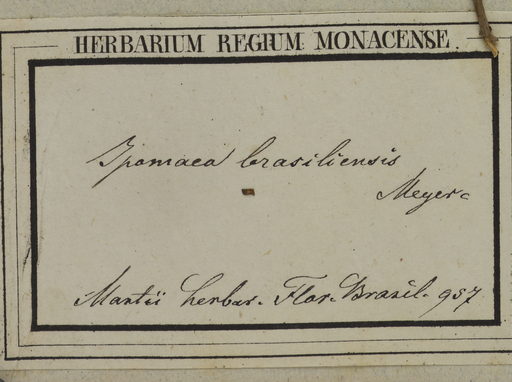 HERBARIUM REGIUM MONACENSE.
Ipomaea brasiliensis
Meyer.
Martii herbar. Flor. Brasil. 957